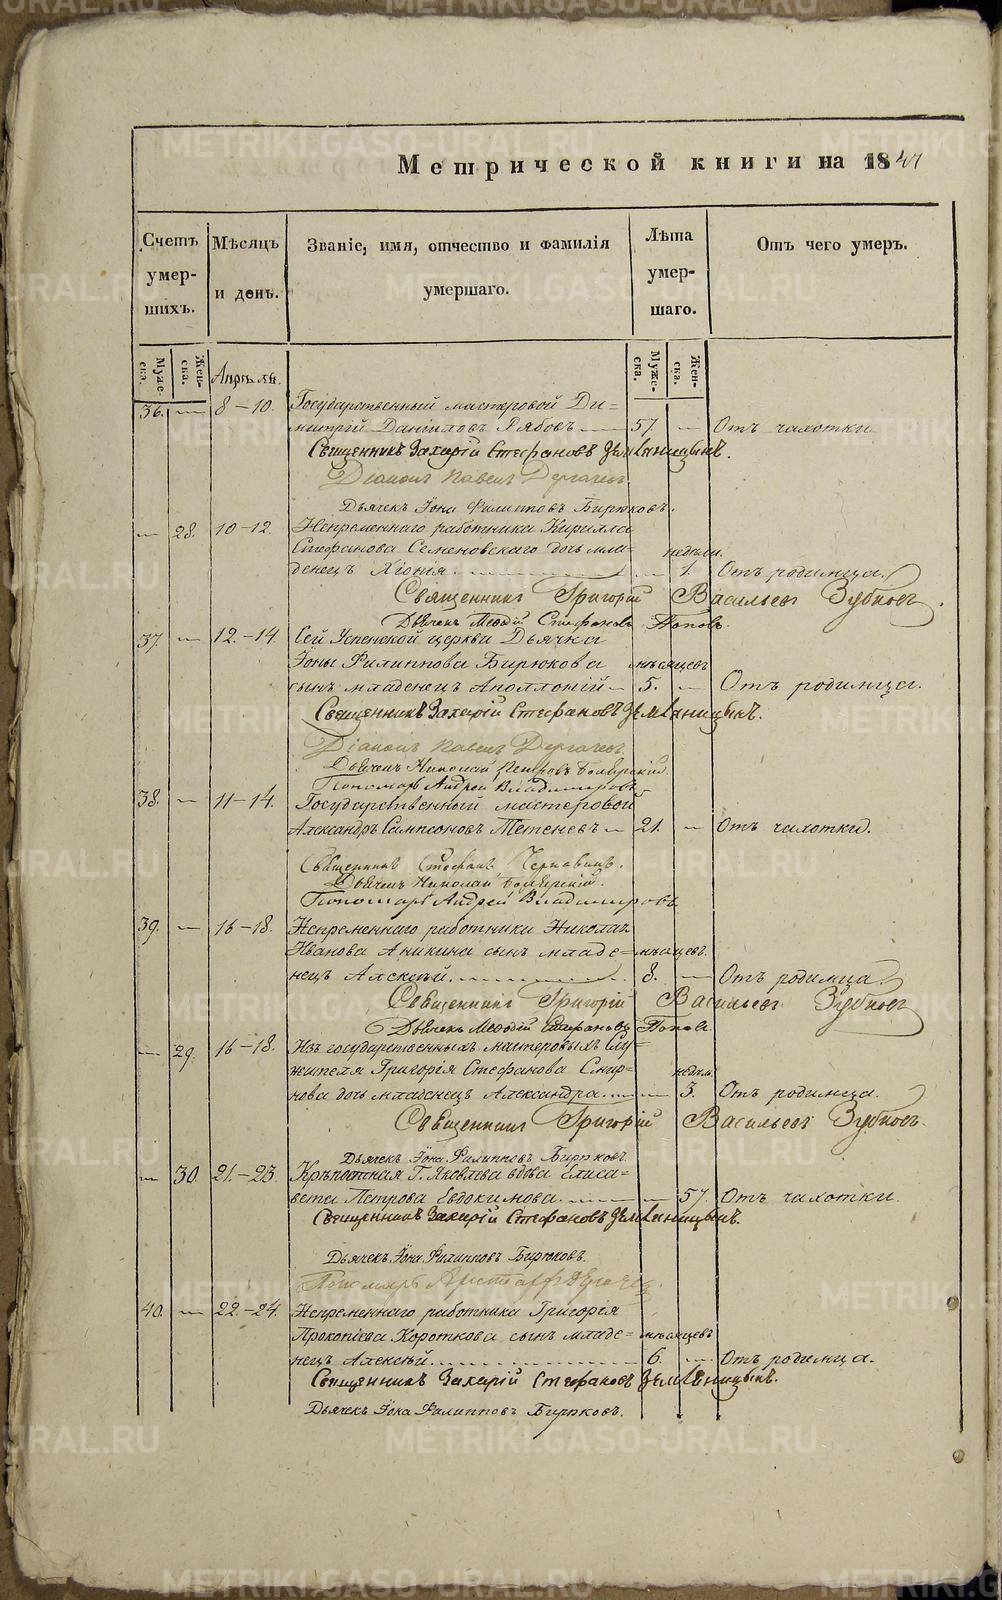 Метрической книги на 1841
Счетъ умершихъ.
Мѣсяцъ и день.
Званіе, имя, отчество и фамилія умершаго.
Лѣта умершаго.
Отъ чего умеръ.
Мужеска. Женска. Апрѣль. Мужеска. Женска.
36. — 8–10. Государственный мастеровой Ди=
митрій Даниловъ Рябовъ — 57. — Отъ чахотки
Священникъ Захарій Стефановъ Земляницынъ.
Діаконъ Павелъ Дергачевъ
Дьячекъ Іона Филипповъ Бирюковъ.
— 28. 10–12. Непременнаго работника Кирилла
Стефанова Семеновскаго дочь мла= недѣли.
денецъ Хіонія. — 1. Отъ родимца.
Священникъ Григорій Васильевъ Зубковъ.
Дьячекъ Меѳодій Стефановъ Поповъ.
37. — 12.–14 Сей Успенской церкви Дьячка
Іоны Филиппова Бирюкова мѣсяцевъ
сынъ младенецъ Аполлоній — 5. — Отъ родимца.
Священникъ Захарій Стефановъ Земляницынъ.
Діаконъ Павелъ Дергачевъ.
Дьячекъ Николай Петровъ Боярскій.
Пономарь Андрей Владимировъ
38. — 11–14. Государственный мастеровой
Александръ Сампсоновъ Тетеневъ — 21. — Отъ чахотки.
Священникъ Стефанъ Черновинъ.
Дьячекъ Николай Боярскій.
Пономарь Андрей Владимировъ
39. — 16–18. Непременнаго работника Николая
Иванова Аникина сынъ младе= мѣсяцевъ.
нецъ Алексѣй. 8. — Отъ родимца
Священникъ Григорій Васильевъ Зубковъ
Дьячекъ Меѳодій Стефановъ Поповъ.
— 29. 16–18. Изъ государственныхъ мастеровыхъ Слу=
жителя Григорія Стефанова Смир= недѣл.
нова дочь младенецъ Александра. — 3. Отъ родимца.
Священникъ Григорій Васильевъ Зубковъ.
Дьячекъ Іона Филипповъ Бирюковъ
— 30. 21–23. Крѣпостная Г. Яковлева вдова Елиса=
вета Петрова Евдокимова. — 57. Отъ чахотки.
Священникъ Захарій Стефановъ Земляницынъ.
Дьячекъ Іона Филипповъ Бирюковъ.
Пономарь
40. — 22–24. Непременнаго работника Григорія
Прокопіева Короткова сынъ младе= мѣсяцевъ
нецъ Алексѣй. 6. — Отъ родимца.
Священникъ Захарій Стефановъ Земляницынъ.
Дьячекъ Іона Филипповъ Бирюковъ.
METRIKI.GASO-URAL.RU